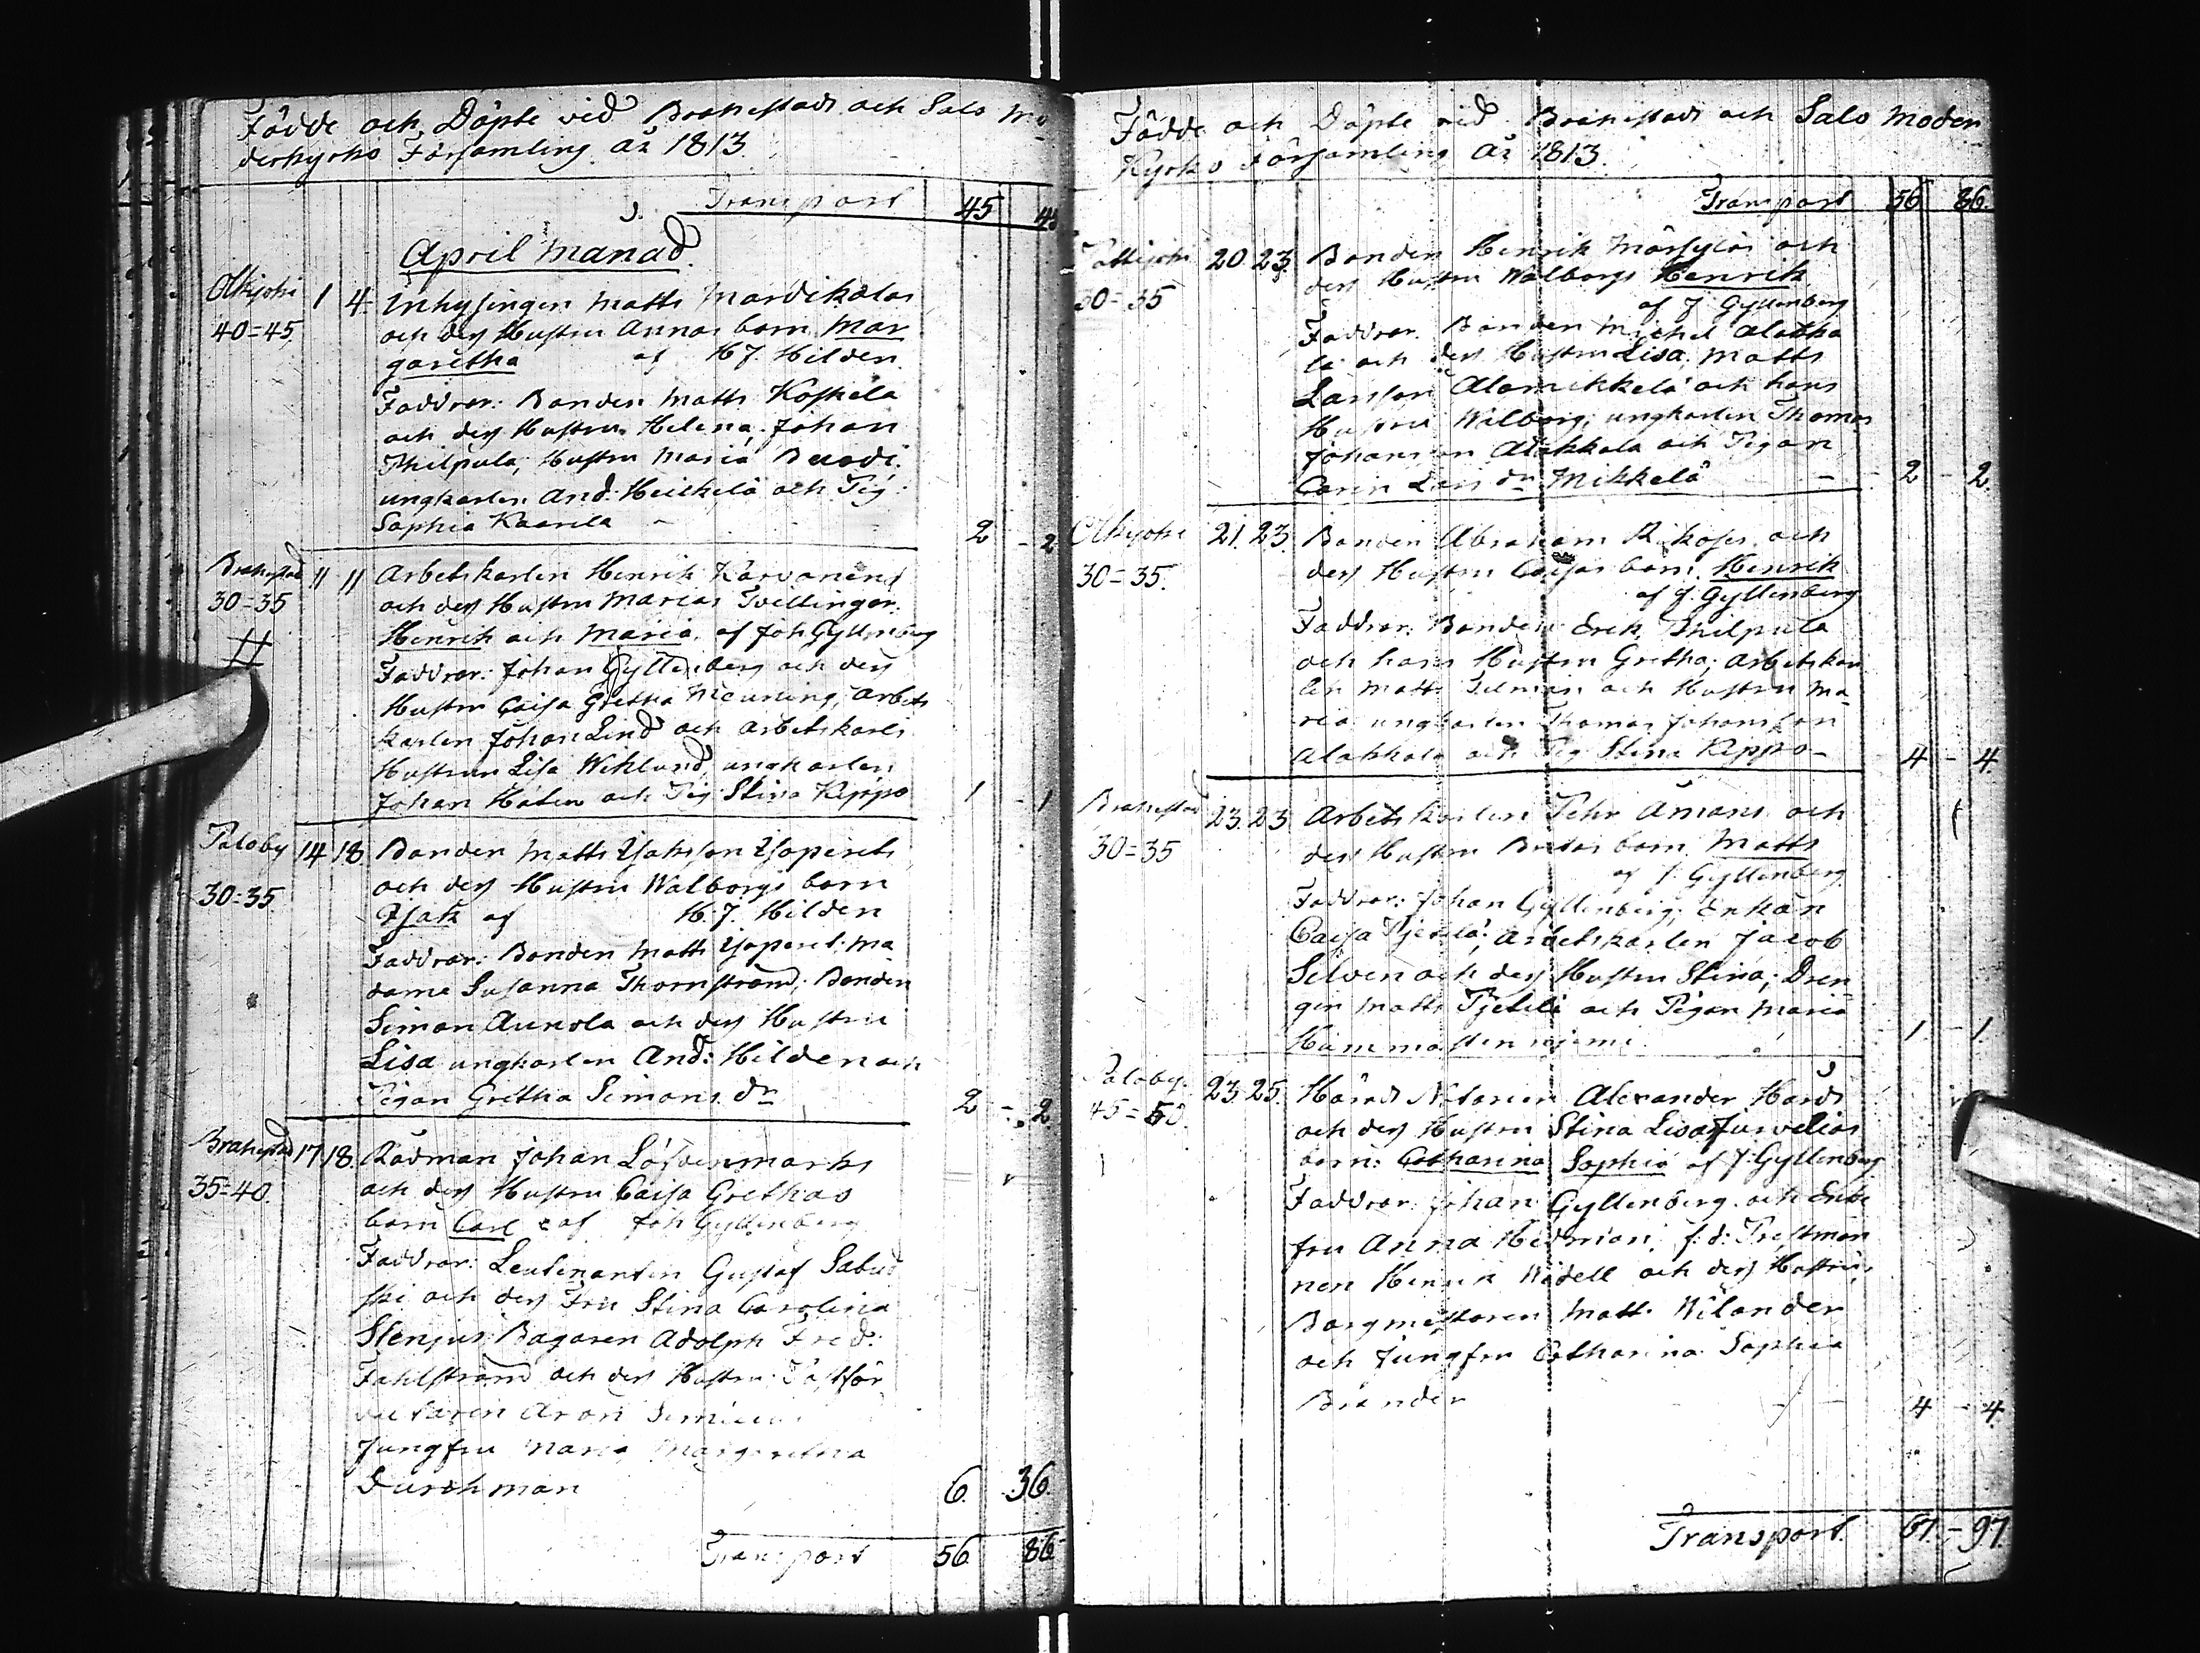 Födde och Döpte vid Brahestads och Salo Mo
derkyrko Församling år 1813.
Transport 45 45
April Månad.
Olkijoki 1 4 Inhysingen Matts Mardikalas
40=45. och dess Hustru Annas barn Mar
garetha af H J. Hilden.
Faddrar: Bonden Matts Koskela
och dess Hustru Helena, Johan
Philpula; Hustru Maria
ungkarlen And: Heikkilä och Pig:
Sophia Kaarela 2 - 2
Brahestad 11 11 Arbetskarlen Henrik Karvonens
30=35 och dess Hustru Marias Tvillingar.
Henrik och Maria af Joh Gyllenberg
Faddrar: Johan Gyllenberg och dess
Hustru Caisa Gretha Meurling, Arbets
karlen Johan Lind och arbetskarls
Hustrun Lisa Wiklund, ungkarlen
Johan Häten och Pig: Stina Keppo 1 - 1
Paloby 14 18 Bonden Matts Isaksson Ysoperets
30=35. och dess Hustru Walborgs barn
Isak af H. J. Hilden
Faddrar: Bonden Matts Ysoperet. Ma
dame Susanna Thornström; Bonden
Simon Aunola och dess Hustru
Lisa ungkarlen And: Hilden och
Pigan Gretha Simons dr 2 - 2
Brahestad 17 18. Rådman Johan Löfvenmarks
35=40. och dess Hustru Caisa Grethas
barn Carl af Joh Gyllenberg
Faddrar: Leutenanten Gustaf
och dess Fru Stina Carolina
Stenius: Bagaren Adolph Fred:
Fahlström och dess Hustru
Aron
Jungfru Maria Margaretha
Durchman 6. 36.
Transport 56 86
Födde och Döpte vid Brahestads och Salo Moder
Kyrko Församling år 1813.
Transport 56 86.
Pattijoki 20. 23. Bonden Henrik och
30=35 dess Hustru Walborgs Henrik
af J Gyllenberg
Faddrar. Bonden Michel Alakka
la och dess Hustru Lisa, Matts
Larsson Alamikkela och hans
Hustru Walborg; ungkarlen Thomas
Johansson Alakkala och Pigan
Carin Lars dr Mikkelä - 2 - 2.
Olkijoki 21. 23. Bonden Abraham och
30=35. dess Hustru Caisas barn. Henrik
af J. Gyllenberg
Faddrar: Bonden Erik Philpula
och hans Hustru Gretha; Arbetskar
len Matts Tilman och Hustru Ma
ria ungkarlen Thomas Johansson
Alakkala och Pig Stina Keppo - 4 - 4.
Brahestad 23. 23 Arbetskarlen Pehr Åmans och
30=35 dess Hustru Britas barn. Matts
af J: Gyllenberg
Faddrar: Johan Gyllenberg; Enkan
Caisa Pjetilä; arbetskarlen Jacob
Silven och dess Hustru Stina; Dren
gen Matts Pjetilä och Pigan Maria
1 - 1.
Paloby. 23. 25. Härads Notarien Alexander Hårds
45=50. och dess Hustru Stina Lisa Jurvelias
barn: Catharina Sophia af J: Gyllenberg
Faddrar: Johan Gyllenberg och Enke
fru Anna Hedman; f: d: Prestman
nen Henrik Widell och dess Hustru,
Borgmestaren Matts Wilander
och Jungfru Catharina Sophia
Brander 4 - 4.
Transport. 67. - 97.